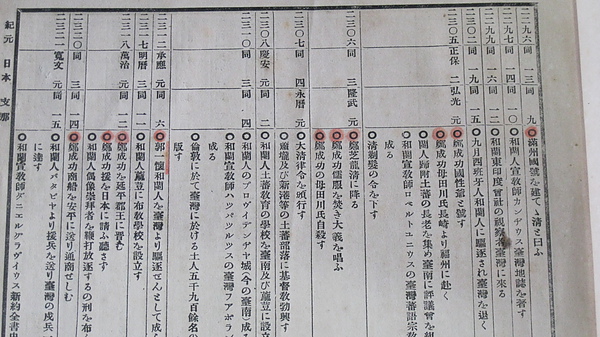 二二九六 同 一三 同 九 ○滿州國號を建てゝ淸と曰ふ
二二九七 同 一四 同 一〇 ○和闌人宣教師カンヂウス臺灣地誌を著す
二二九九 同 一六 同 一二 ○和闌東印度會社の視察者臺灣に來る
二三〇二 同 一九 同 一五 ○九月四班牙人和闌人に驅逐され臺灣を退く
二三〇五 正保 二 弘光 元 ○鄭成功國性爺と號す
○鄭成功の母田川氏長崎より福州に赴く
○闌人歸附土蕃の長老を集め臺南に評議會を組
○和闌宣教師ロベルトユニウスの臺灣蕃語宗教
成る
○清剃髮の令を下す
二三〇六 同 三 隆武 元 ○鄭芝龍清に降る
○鄭成功の母田川氏自殺す
○鄭成功儒服を焚き大義を唱ふ
二三〇七 同 四 永曆 元 ○大清律令を頒行す
○頭壠及新港等の土蕃部落に基督教勃興す
二三〇八 慶安 元 同 二 ○和闌人土蕃教育の學校を臺南及蔴荳に設立
二三一〇 同 三 同 四 ○和闌人のプロヴィデンチヤ城(今の臺南)成る
○和闌宣教師ハツパルツルスの臺灣フアボラ
成る
○倫敦に於て臺灣に於ける土人五千九百餘名の
版す
二三一二 承應 元 同 六 ○郭一懷和闌人を臺灣より驅逐せんとして成
二三一七 明曆 三 同 一一 ○和闌人蔴荳に布教學校を設立す
二三一八 萬治 元 同 一二 ○鄭成功を延平郡王に晋む
○鄭成功援を日本に請ふ聽さず
○和闌人偶像崇拜者を鞭打放逐するの刑を布
二三二〇 同 三 同 一四 ○鄭成功商船を安平に送り通商せしむ
二三二一 寬文 元 同 一五 ○和闌人バタビヤより援兵を送り臺灣の戍兵
に達す
○和闌宣教師ダニエルグラヴイウス新約全書中
紀元 日本 支那